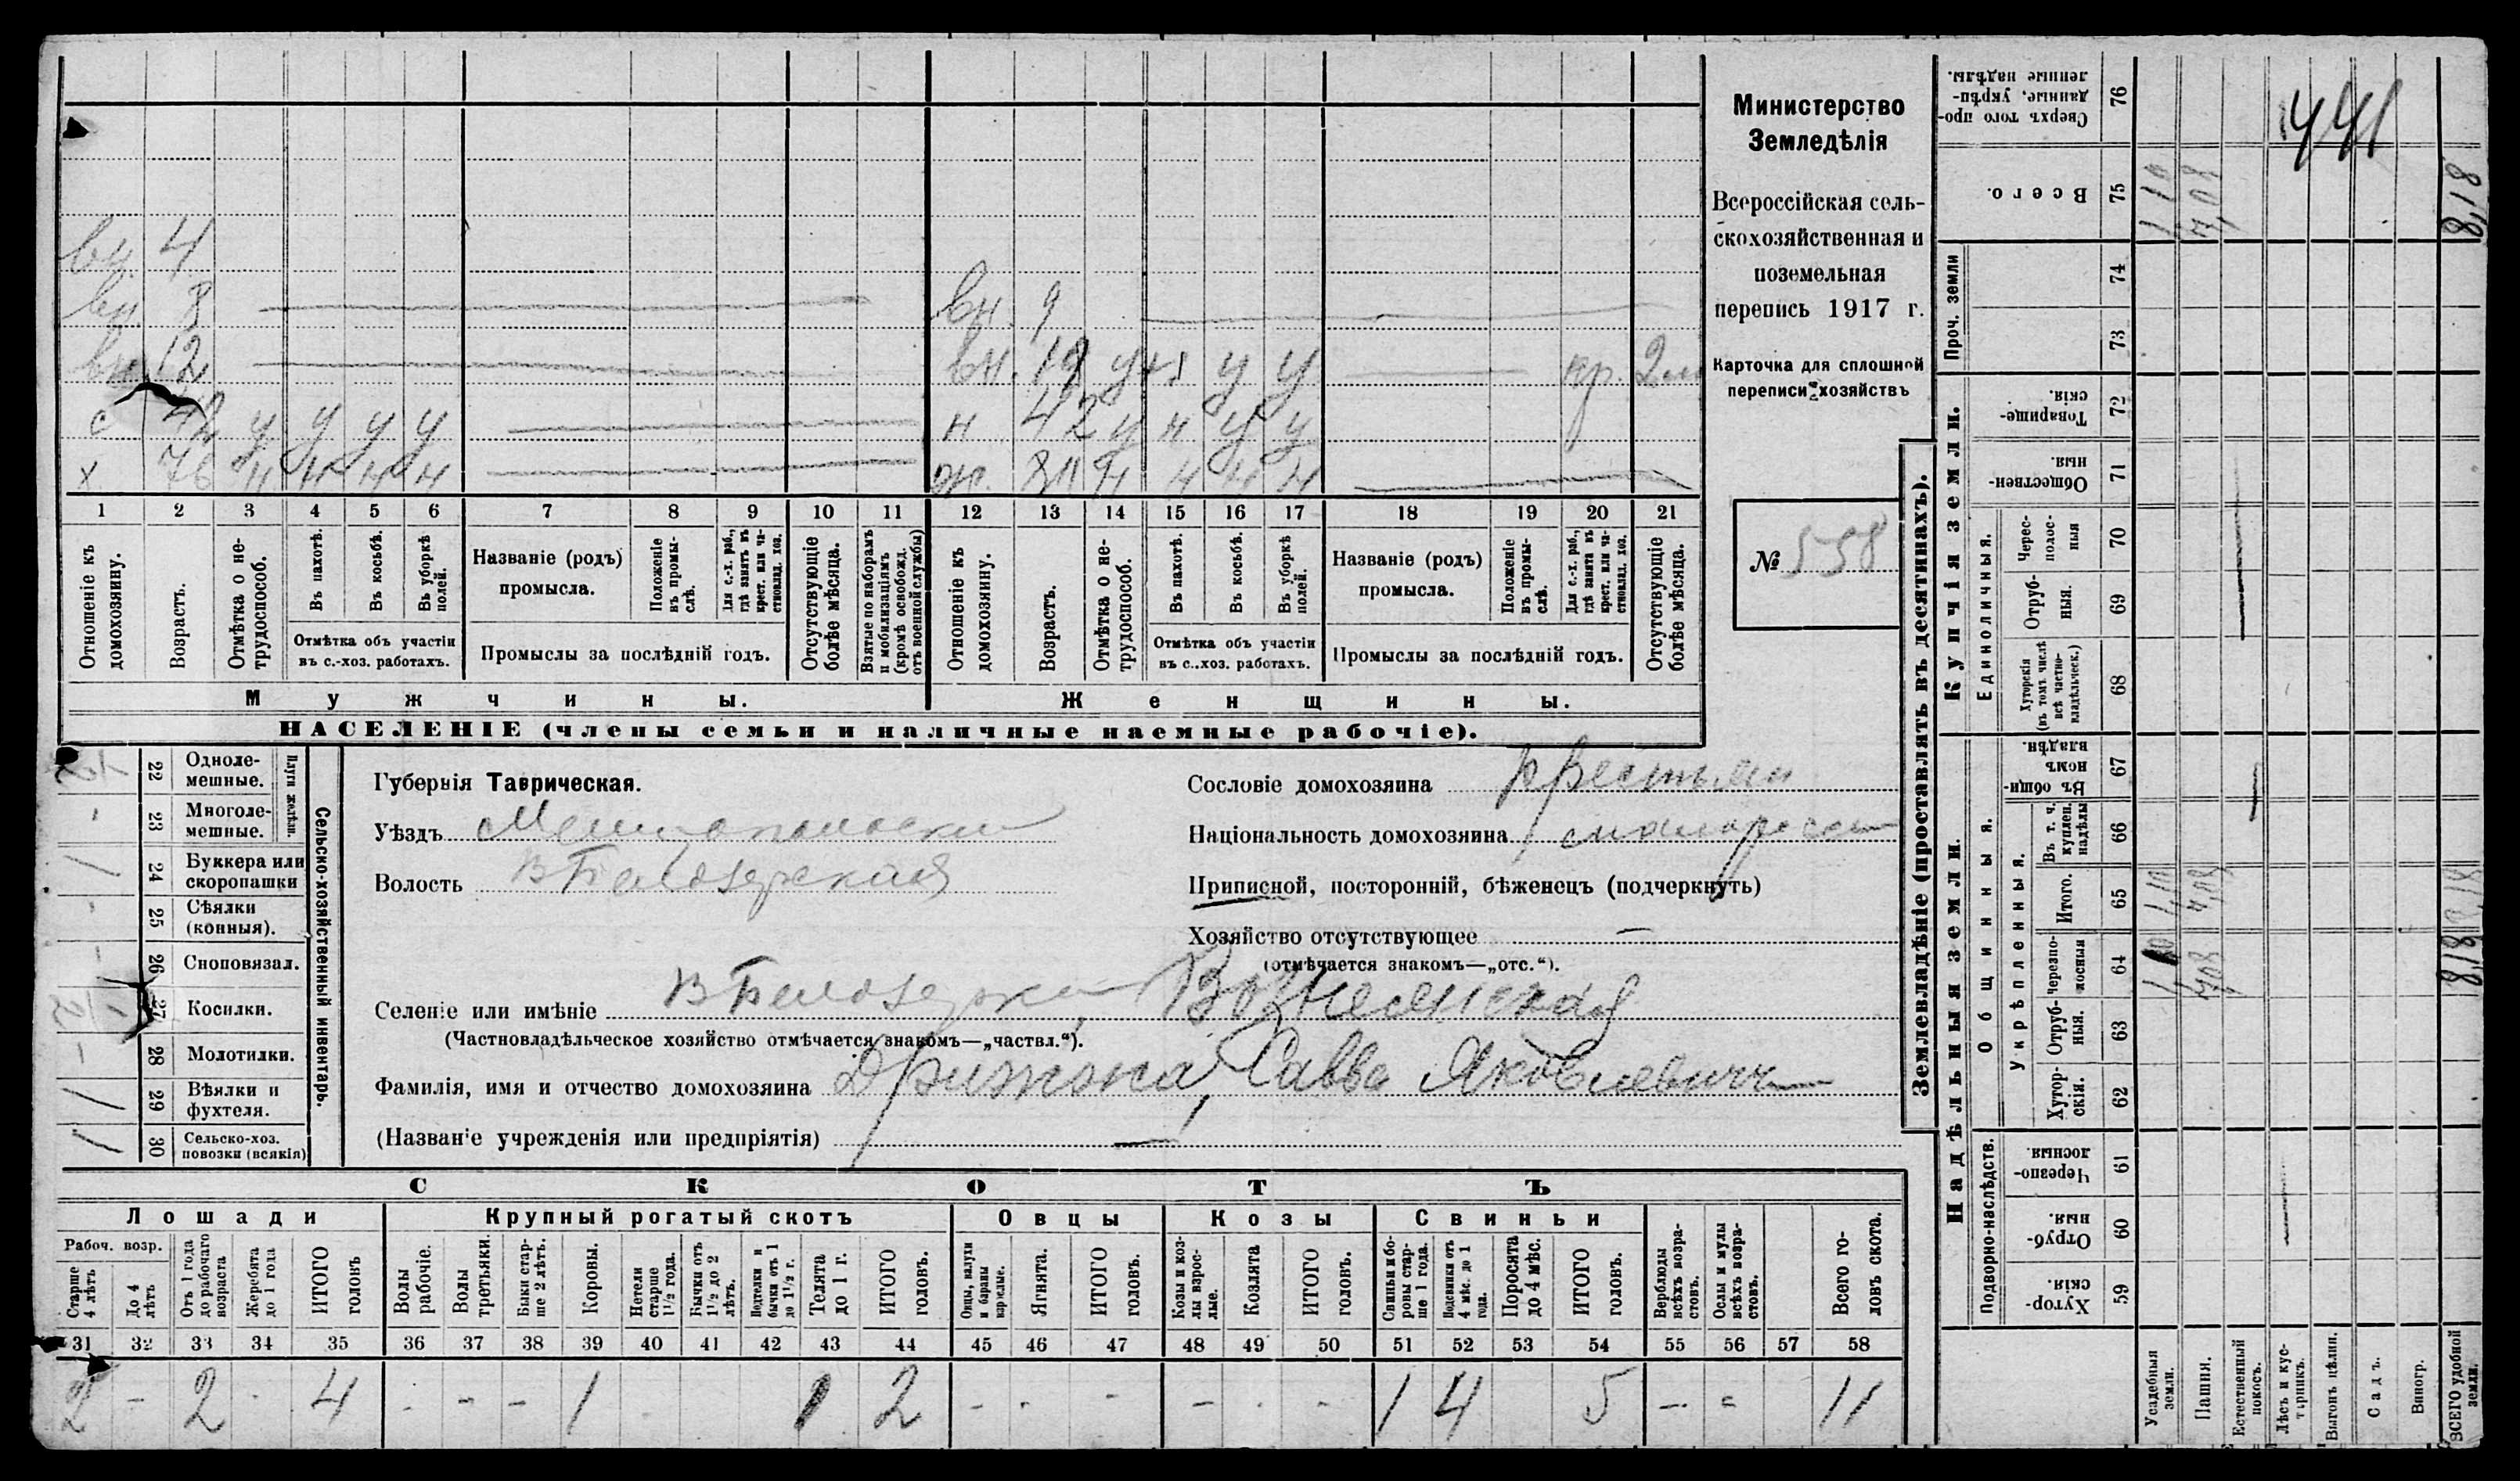 вн. 4
вн. 8
вн 12
с 42 у у у у
х 76 н н н н
вн. 9
вн. 19 у н у у кр. 2 м
н 42 у н у у
ж. н н н н
1 2 3 4 5 6 7 8 9 10 11 12 13 14 15 16 17 18 19 20 21
Отношеніе къ домохозяину.
Возрастъ.
Отмѣтка о не-
трудоспособ.
Въ пахотѣ.
Въ косьбѣ.
Въ уборкѣ
полей.
Отмѣтка объ участіи
въ с.-хоз. работахъ.
Названіе (родъ)
промысла.
Положеніе
въ промы-
слѣ.
Для с.-х. раб.,
гдѣ занятъ въ
крест. или ча-
стновлад. хоз.
Промыслы за послѣдній годъ.
Отсутствующіе
болѣе мѣсяца.
Взятые по наборамъ
и мобилизаціямъ
(кромѣ освобожд.
отъ военной службы)
Отношеніе къ
домохозяину.
Возрастъ.
Отмѣтка о не-
трудоспособ.
Въ пахотѣ.
Въ косьбѣ.
Въ уборкѣ
полей.
Отмѣтка объ участіи
въ с..хоз. работахъ.
Названіе (родъ)
промысла.
Положеніе
въ промы-
слѣ.
Для с.-х. раб.,
гдѣ занята въ
крест. или ча-
стновлад. хоз.
Промыслы за послѣдній годъ.
Отсутствующіе
болѣе мѣсяца.
Мужчины.
Женщины.
НАСЕЛЕНІЕ (члены семьи и наличные наемные рабочіе).
Министерство
Земледѣлія
Всероссійская сель-
скохозяйственная и
поземельная
перепись 1917 г.
Карточка для сплошной
переписи хозяйствъ
№ 558
22 Одноле-
мешные.
23 Многоле-
мешные.
Плуги желѣзн.
24 Буккера или
скоропашки
25 Сѣялки
(конныя).
26 Сноповязал.
27 Косилки.
28 Молотилки.
29 Вѣялки и
фухтеля.
30 Сельско-хоз.
повозки (всякія)
Сельско-хозяйственный инвентарь.
Губернія Таврическая.
Уѣздъ Мелитопольский
Волость В Белозерская
Сословіе домохозяина крестьян
Національность домохозяина малоросс
Приписной, посторонній, бѣженецъ (подчеркнуть)
Хозяйство отсутствующее —
(отмѣчается знакомъ—„отс.“).
Селеніе или имѣніе В Белозерка Вознесенская
(Частновладѣльческое хозяйство отмѣчается знакомъ—„частвл.“).
Фамилія, имя и отчество домохозяина Дрижжа, Савва Яковлевич
(Названіе учрежденія или предпріятія) —
СКОТЪ
Лошади
Крупный рогатый скотъ
Овцы
Козы
Свиньи
Рабоч. возр.
Старше
4 лѣтъ
До 4
лѣтъ
Отъ 1 года
до рабочаго
возраста
Жеребята
до 1 года
ИТОГО
головъ
Волы
рабочіе.
Волы
третьяки.
Быки стар-
ше 2 лѣтъ.
Коровы.
Нетели
старше
1½ года.
Бычки отъ
1½ до 2
лѣтъ.
Подтелки и
бычки отъ 1
до 1½ г.
Телята
до 1 г.
ИТОГО
головъ.
Овцы, валухи
и бараны
взрослые.
Ягнята.
ИТОГО
головъ.
Козы и коз-
лы взрос-
лые.
Козлята
ИТОГО
головъ.
Свиньи бо-
ровы стар-
ше 1 года.
Подсвинки отъ
4 мѣс. до 1
года.
Поросята
до 4 мѣс.
ИТОГО
головъ.
Верблюды
всѣхъ возра-
стовъ.
Ослы и мулы
всѣхъ возра-
стовъ.
Всего го-
ловъ скота.
31 32 33 34 35 36 37 38 39 40 41 42 43 44 45 46 47 48 49 50 51 52 53 54 55 56 57 58
2 - 2 - 4 - - - 1 1 2 - - - - - - 1 4 5 - - 11
Землевладѣніе (проставлять въ десятинахъ).
Купчія земли.
Надѣльныя земли.
Сверхъ того про-
данные, укрѣп-
ленные надѣлы.
76
441
Всего.
75
1,10
7,08
8,18
Проч. земли
74
73
Товарище-
скія.
72
Обществен-
ныя.
71
Единоличныя.
Черес-
полос-
ныя
70
Отруб-
ныя.
69
Хуторскія
(въ томъ числѣ
всѣ частно-
владѣльческ.)
68
Общинныя.
Въ общи-
номъ
владѣн.
67
Укрѣпленныя.
Въ т. ч.
куплен.
надѣлы
66
Итого.
65
1,10
7,08
8,18
Черезпо-
лосныя
64
1,10
7,08
8,18
Отруб-
ныя.
63
Хутор-
скія.
62
Подворно-наслѣдств.
Черезпо-
лосныя.
61
Отруб-
ныя.
60
Хутор-
скія.
59
Усадебныя
земли.
Пашня.
Естественный
покосъ.
Лѣсъ и кус-
тарникъ.
Выгонъ цѣлин.
Садъ.
Виногр.
ВСЕГО удобной
земли.